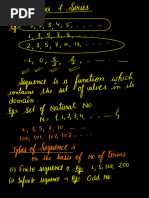 Sequence & Series
Eg:- 1, 2, 3, 4, 5, . . . . .
1, 3, 5, 7, 9, . . . .
2, 3, 5, 7, 11, 13, . . . .
Sequence is a function which
contains the set of values in its
domain.
Eg:- Set of Natural No.
N = { 1, 2, 3, 4, . . . }
Types of Sequence :
on the basis of No of terms
(i) Finite sequence → Eg:
(ii) Infinite sequence → Eg: Odd No.